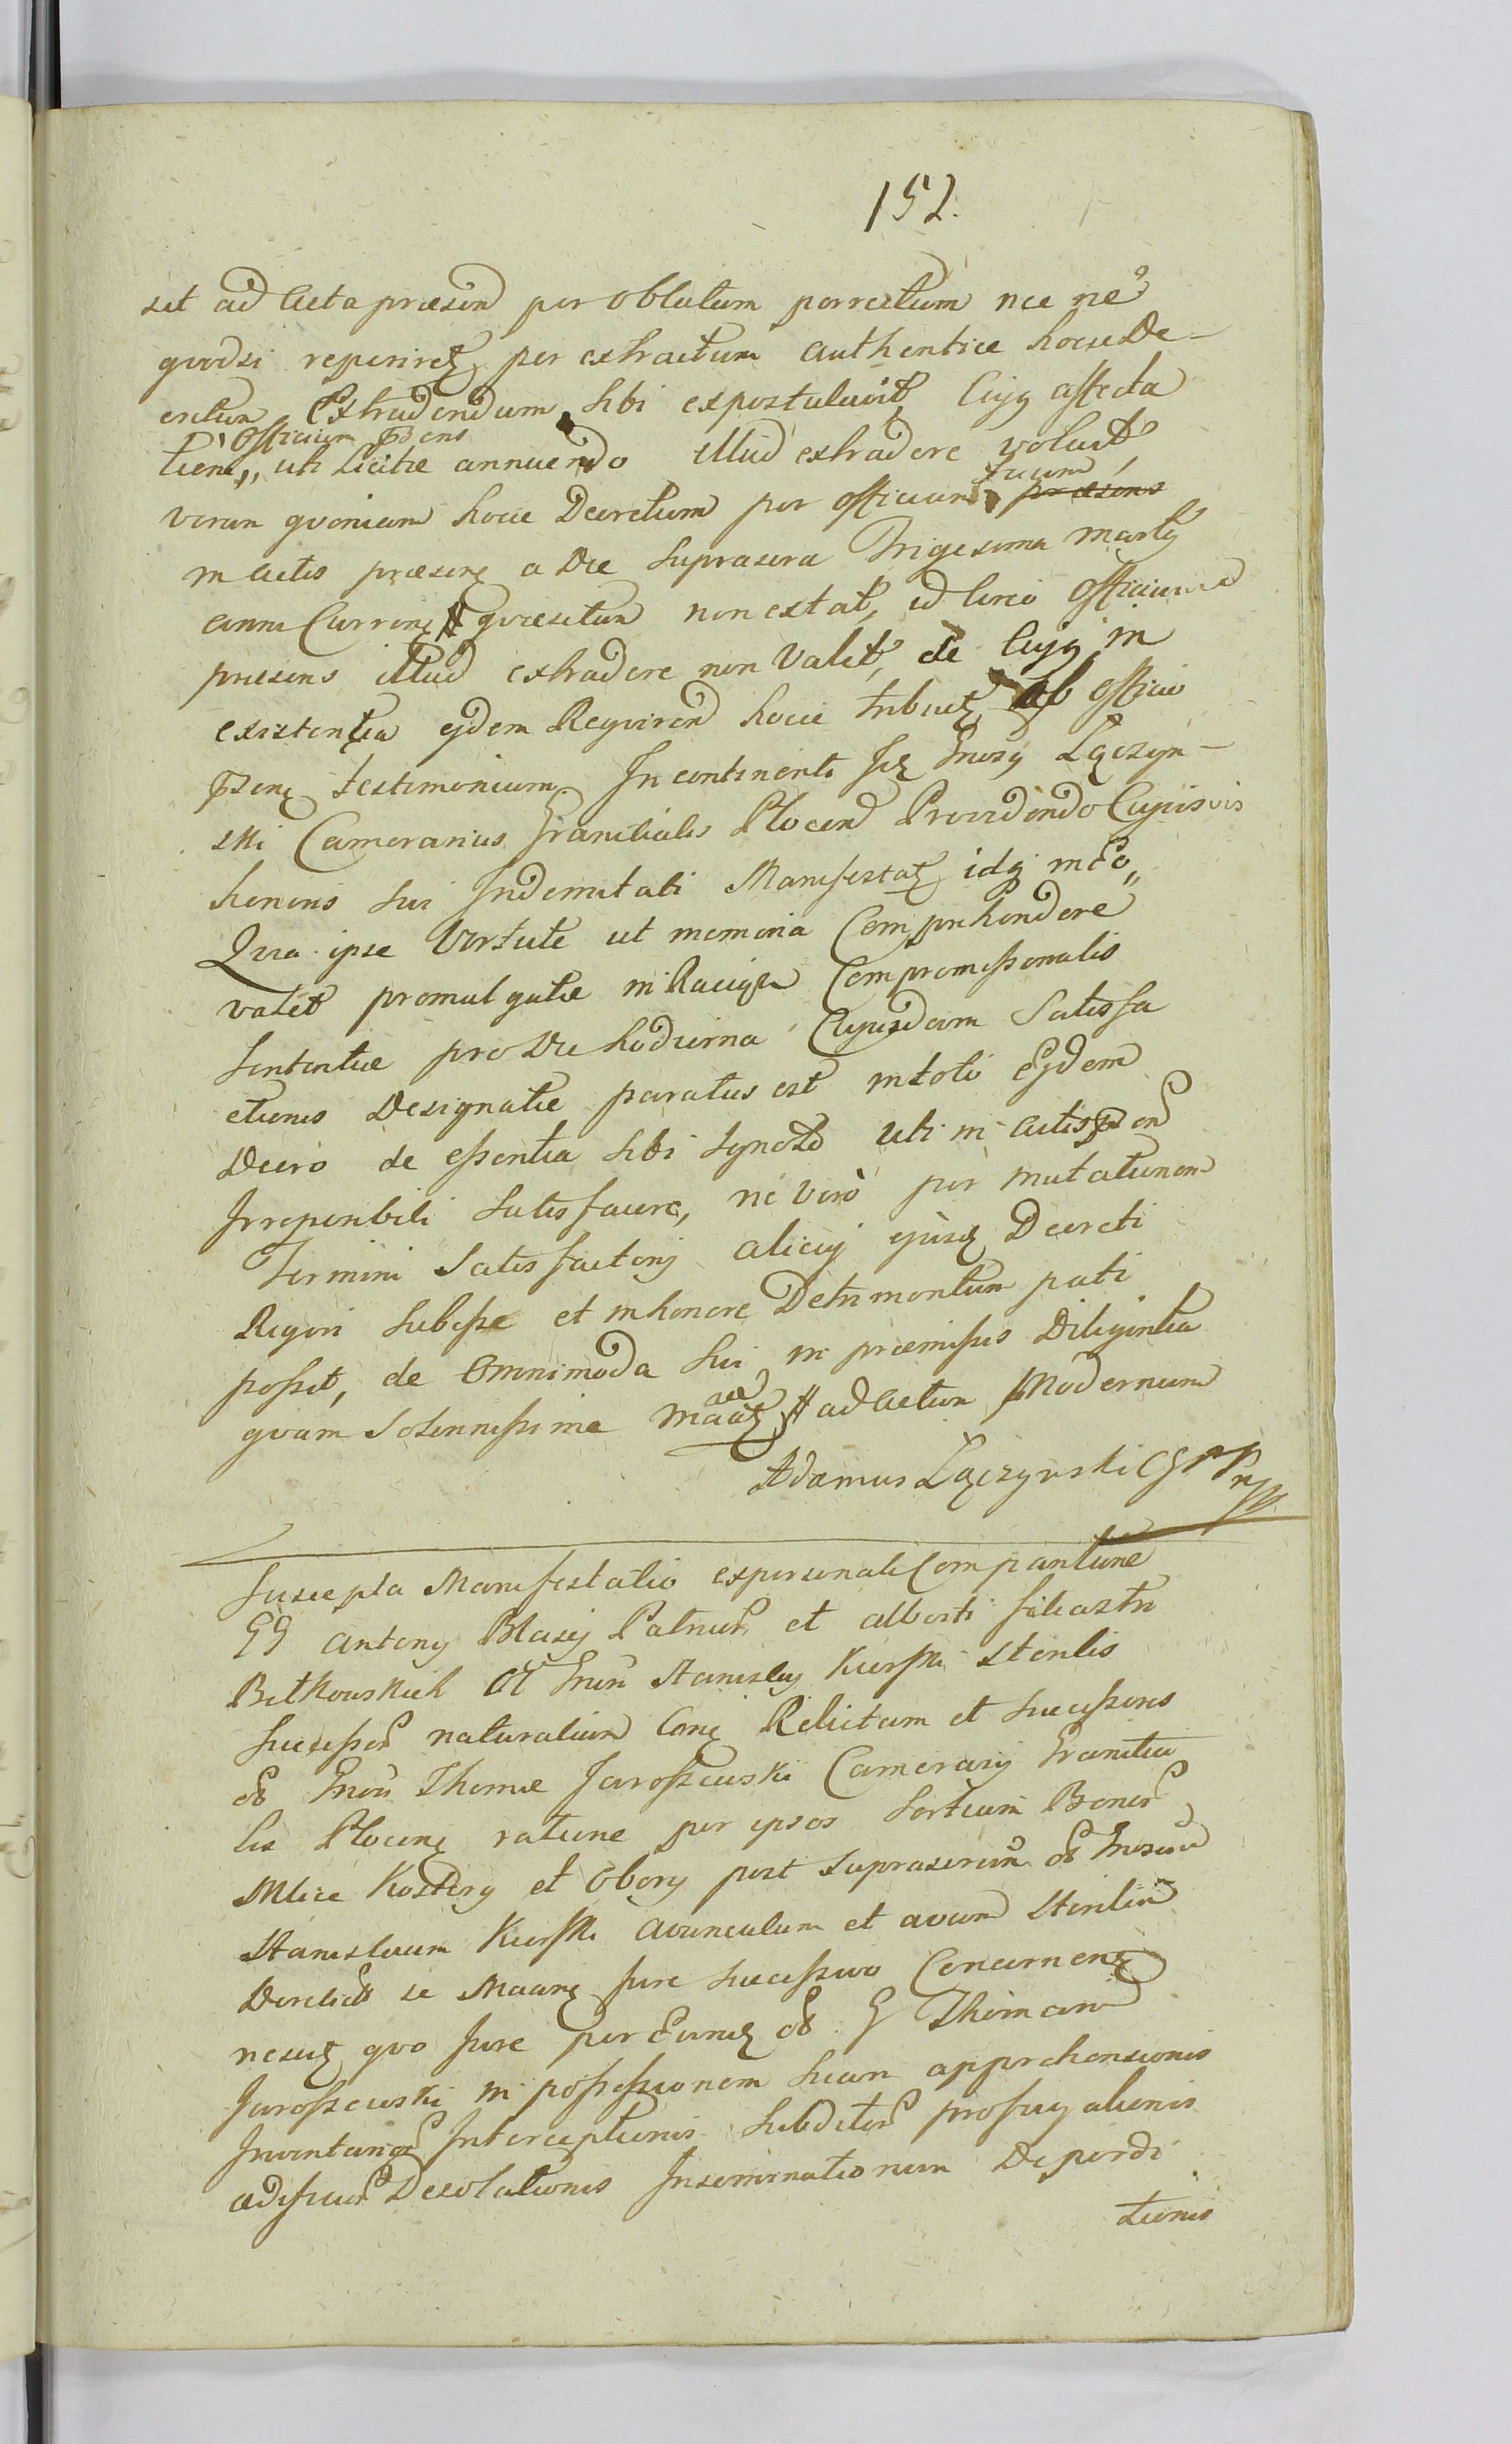 152.
sit ad Acta præsen per oblatum porrectum nec ne
quodsi reperiretz per extractum authentice hocce De-
cretum Extradendum sibi expostulavit, Cujq affecta
Officium ꝑsens
tioni,, uti licitæ annuendo illud extradere voluit
suum
verum quoniam hocce Decretum per officium præsens
in Actis præsenz a Die suprascra Trigesima Martij
anni Currenz quæsitum non extat, id circo Officium
præsens illud extradere non Valet, de Cujq in
existentia ejdem Requiren hocce tribuitz ab officio
ꝑsenz testimonium. In continenti Gnosq Łączyn-
ski Camerarius Granitialis Plocen Providendo Cujusvis
honoris sui Indemnitati Manifestatz idq in eo,,
Quia ipse Virtute ut memoria Comprehendere
valet promulgatæ in Raciąż Compromissionalis
Sententiæ pro Die hodierna Cujusdam Satisfa
ctionis Designatæ paratus est in toto Ejdem
Decro de essentia sibi Ignoto uti in Actis ꝑsen
Irreperibili Satisfacere, ne vero per mutationem
Termini Satisfactorij alicuj ejusq Decreti
Rigori subesse et in honore Detrimentum pati
possit, de Omnimoda sui in præmissis Diligentia
quam Solennissime Maatz ad actum Modernum
Adamus Łączyński CGPP mpp
Suscepta Manifestatio ex personali Comparitione
GG Antonij Blasij Patruor et Alberti filiastri
Bętkowskich Ol Gnsi Stanislaj Kierski Sterilis
Successor naturalium Conz Relictam et Successores
ob Gnosi Thomæ Jaroszewski Camerarij Granitia
lis Plocenz ratione per ipsos Sortium Bonor
Mlice Kostery et Obory post suprascrim ol Gnosum
Stanislaum Kierski avunculum et avum Sterilem
Derelict se Maanz Jure Successivo Concernenz
nesciz quo Jure per Eundz ol G Thomam
Jaroszewski in possessionem suam apprehensionis
Inventarior Interceptionis Subditor profugationis
ædificior Desolationis Inseminationum Deperdi
tionis